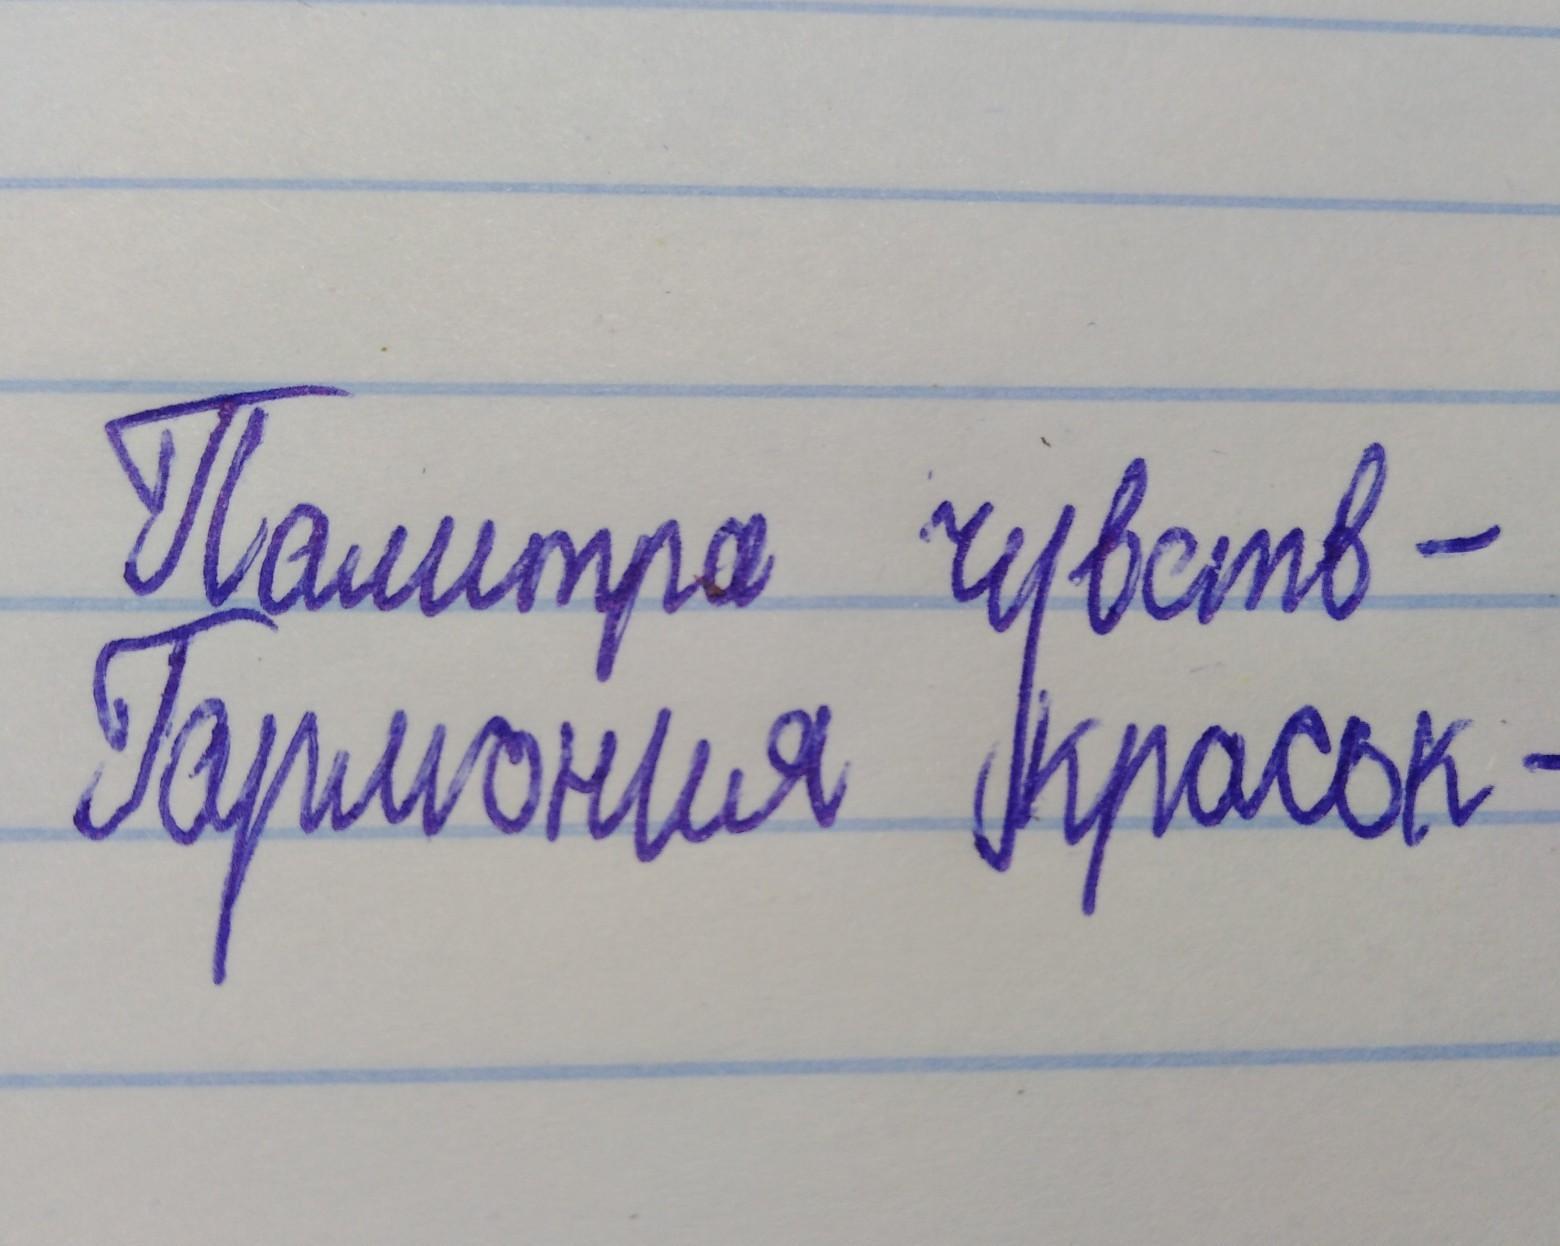 Палитра чувств -
Гармония красок -